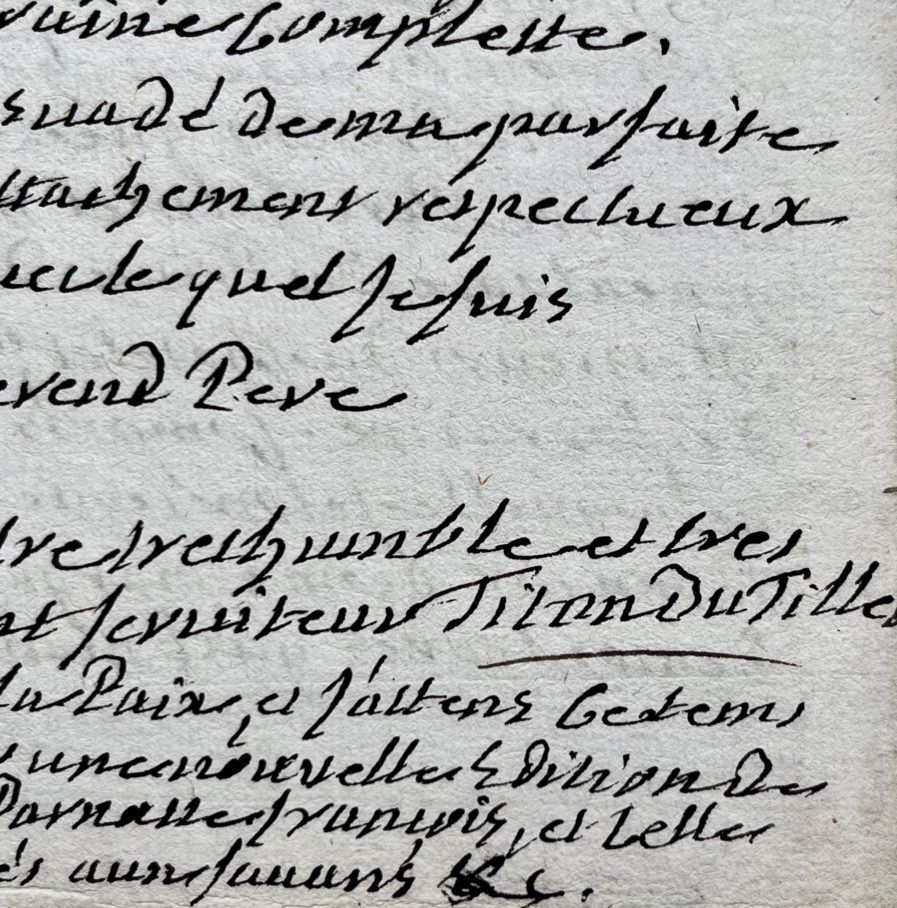 complette.
suadé de ma parfaite
ttachement respectueux
lequel Je suis
verend Pere
tre tres humble et tres
nt serviteur Titon Du Tillet
la Paix, et J'attens Ce tems
une nouvelle Edition De
Parnasse françois, et Celle
és aux sauans &c.